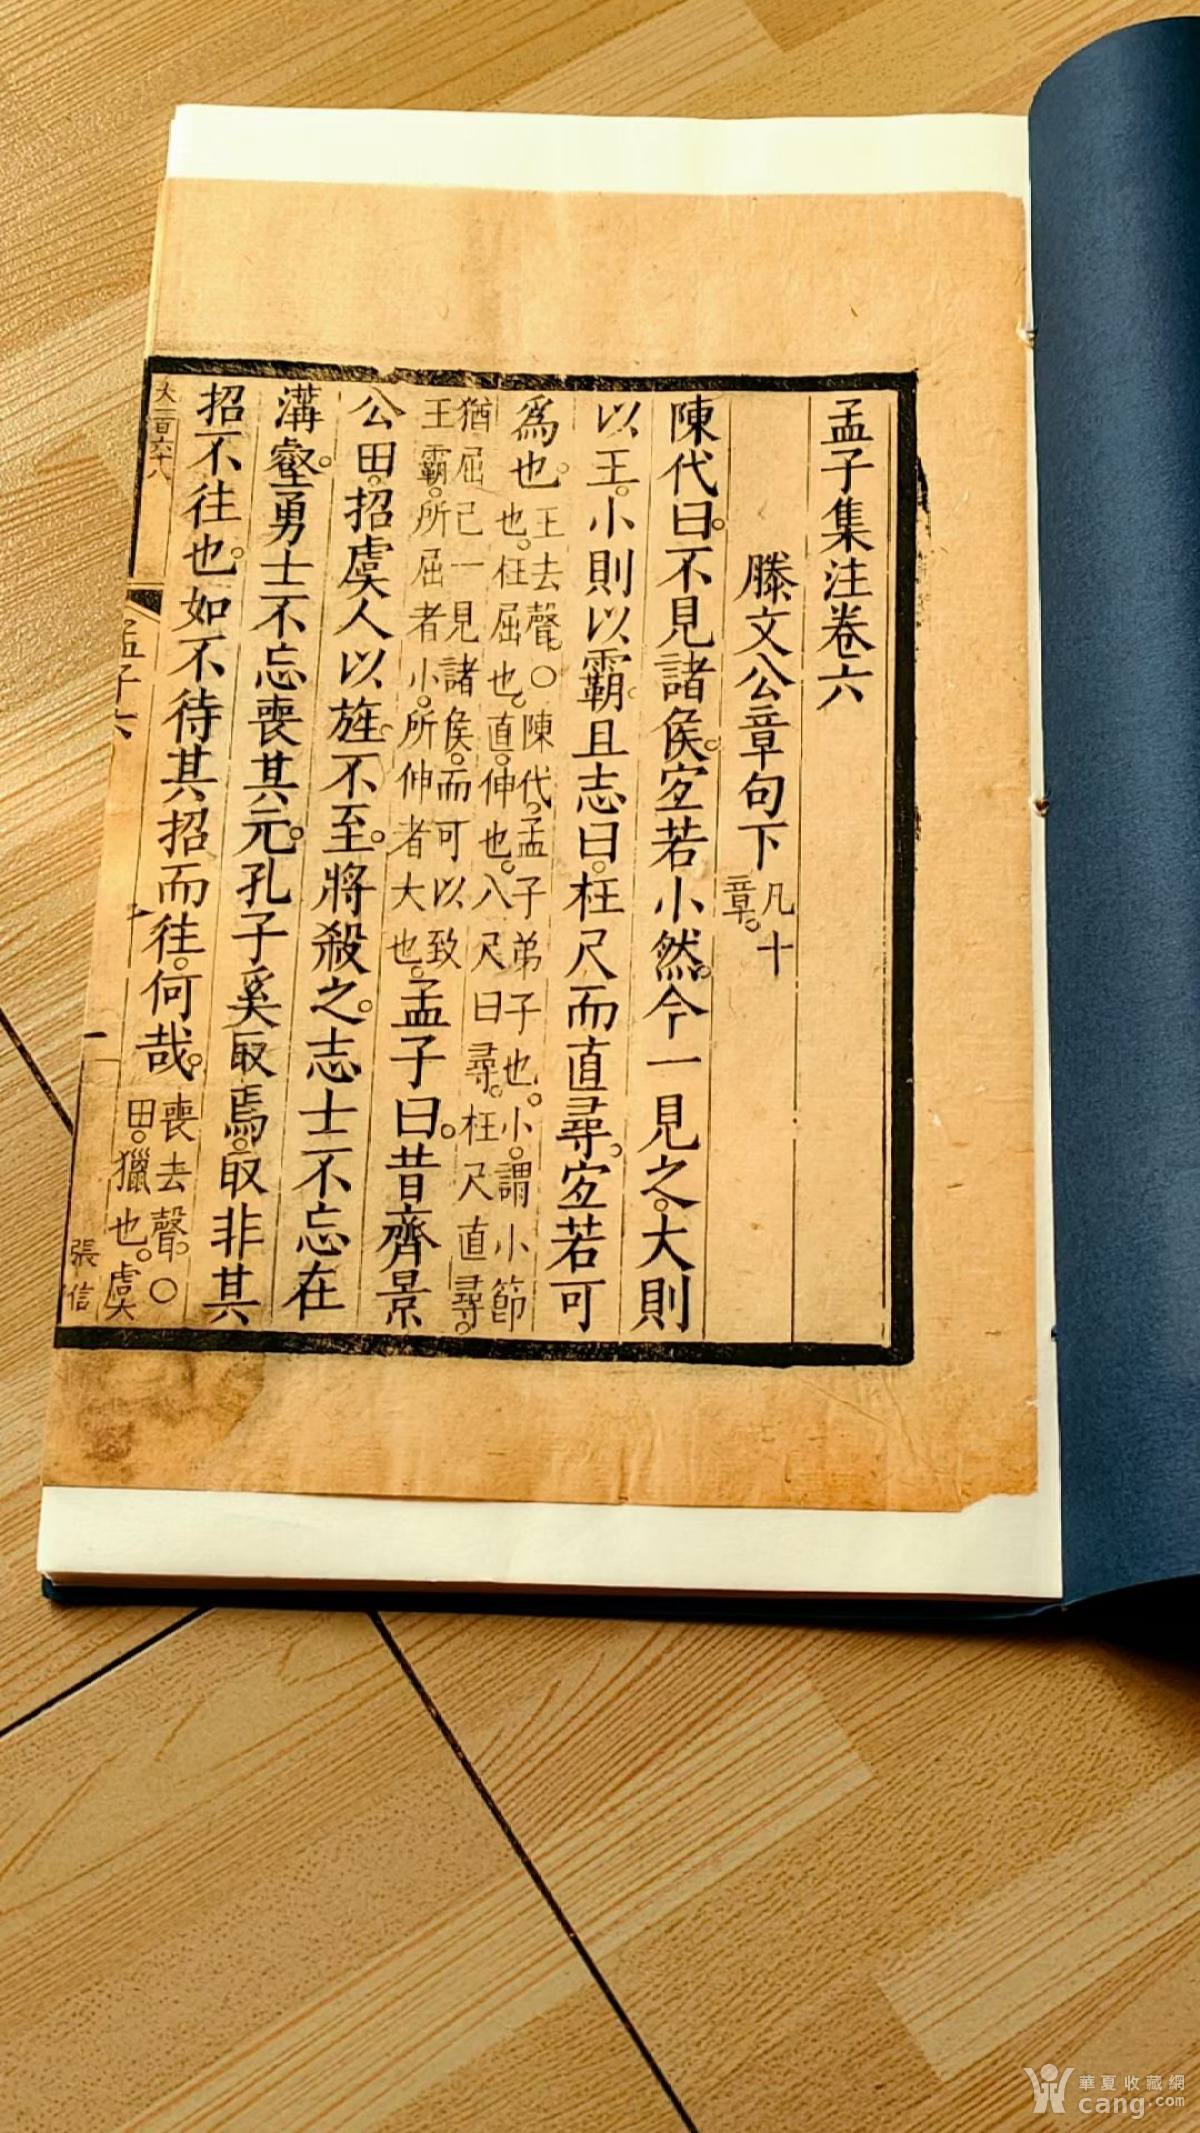 孟子集注卷六
滕文公章句下凡十章。
陳代曰。不見諸侯。宐若小然。今一見之。大則
以王。小則以霸。且志曰。枉尺而直尋。宐若可
爲也。王去聲。○陳代。孟子弟子也。小。謂小節也。枉。屈也。直。伸也。八尺曰尋。枉尺直尋。
猶屈己一見諸侯。而可以致王霸。所屈者小。所伸者大也。孟子曰。昔齊景
公田。招虞人以旌。不至。將殺之。志士不忘在
溝壑。勇士不忘喪其元。孔子奚取焉。取非其
招不往也。如不待其招而往。何哉。喪去聲。○田。獵也。虞
大一百六十八
孟子六
一
張信
華夏收藏網
cang.com